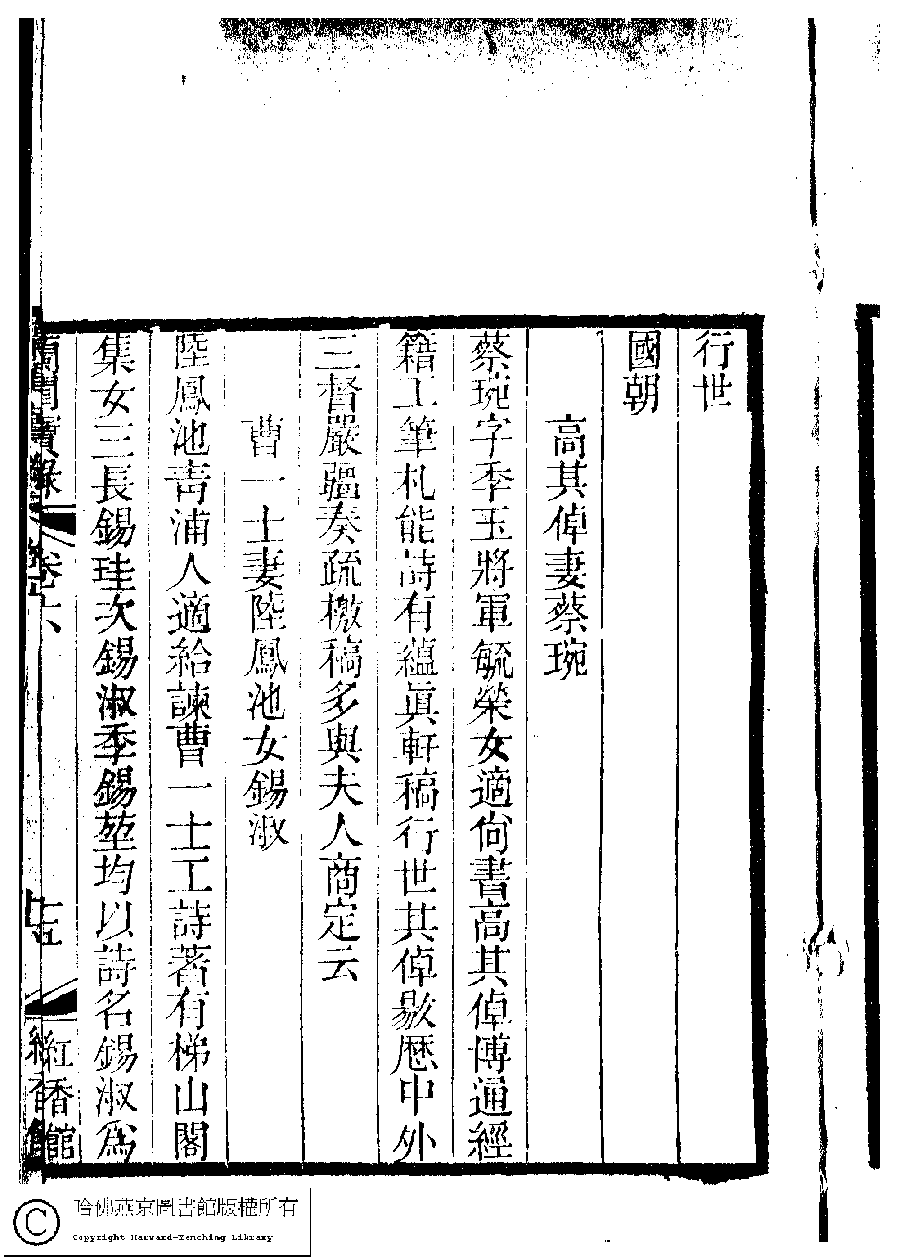 行世
國朝
高其倬妻蔡琬
蔡琬字季玉將軍毓榮女適尙書高其倬博通經
籍工筆札能詩有蘊眞軒稿行世其倬敭歴中外
三督嚴疆奏疏檄稿多與夫人商定云
曹一士妻陸鳳池女錫淑
陸鳳池靑浦人適給諫曹一士工詩著有梯山閣
集女三長錫珪次錫淑季錫堃均以詩名錫淑爲
蘭閨寶錄 卷六 十五 紅香館
哈佛燕京圖書館版權所有
Copyright Harvard-Yenching Library